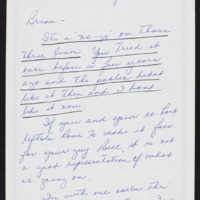 Brian -
It's a "no-no" on those
three boxes. You tried it
once before a few years
ago and the public didnt
like it then and I dont
like it now.
If you and your
have to make it
for your you it is not
a good representation of what
is going on.
I'm with one